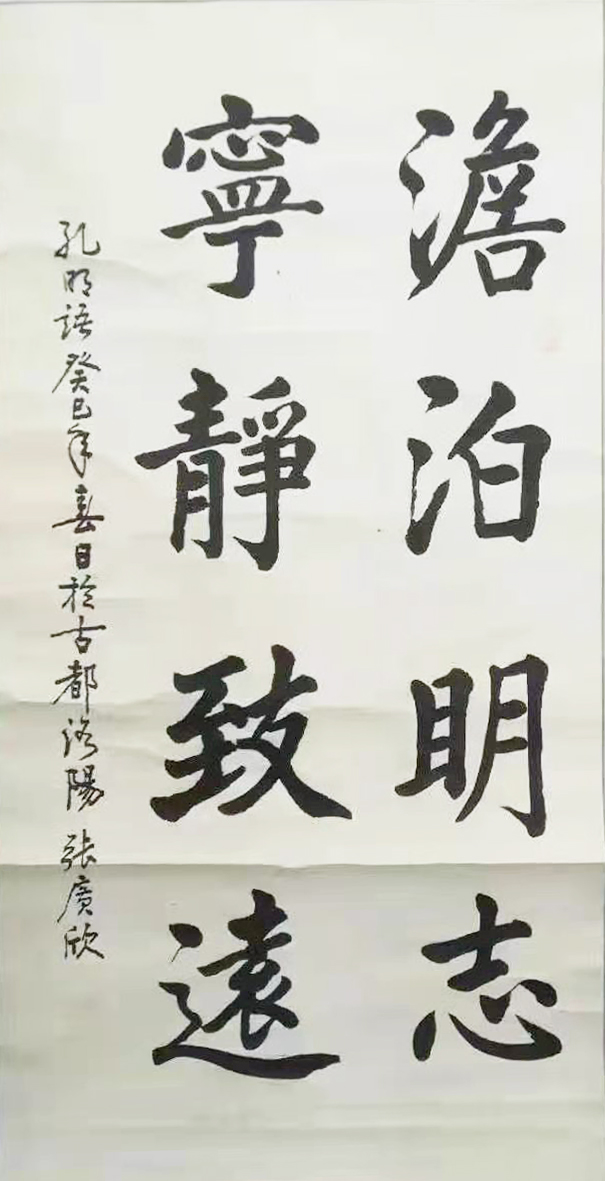 澹泊明志
寧靜致遠
孔明語癸巳年春日於古都洛陽張廣欣